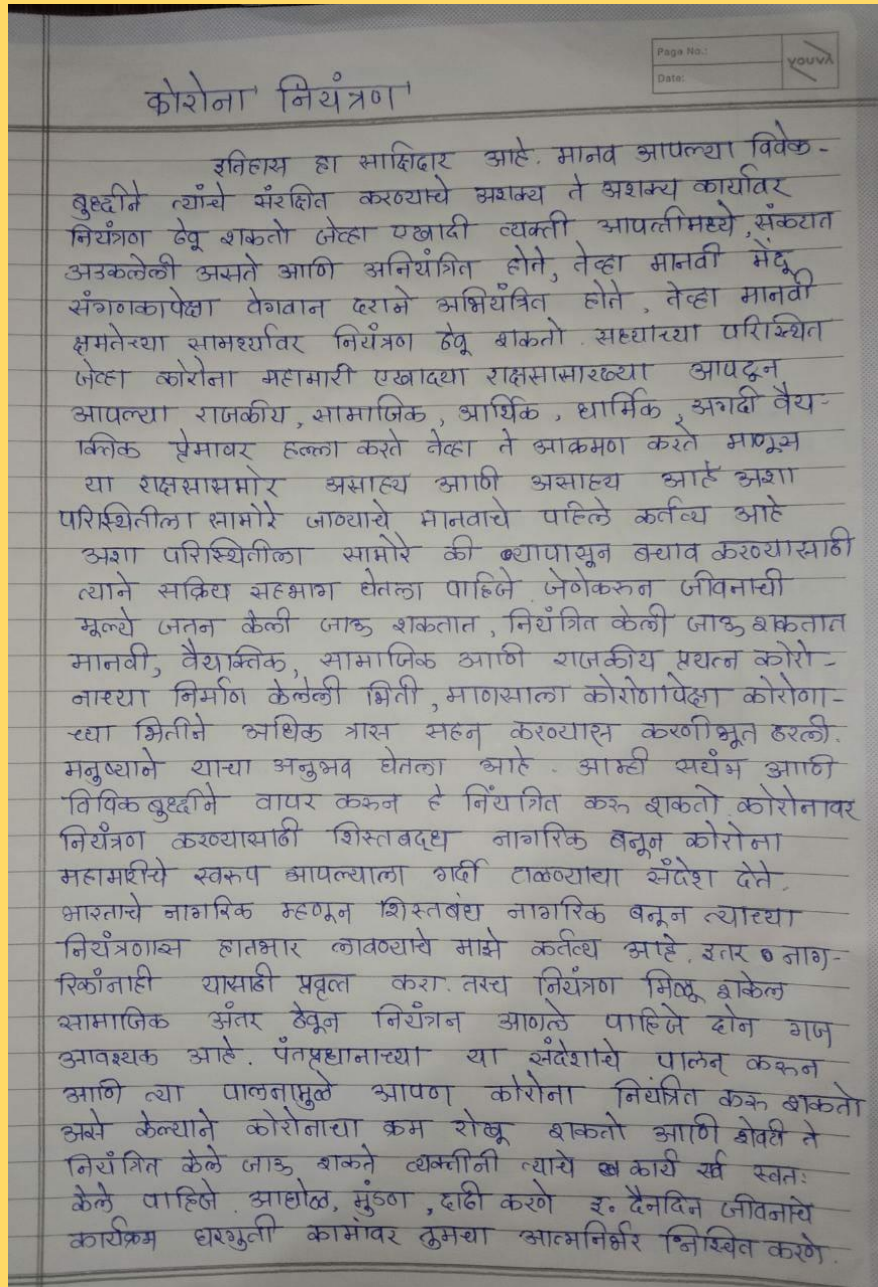 Page No.:
Date:
YOUVA
कोरोना नियंत्रण
इतिहास हा साक्षिदार आहे. मानव आपल्या विवेक-
बुध्दीने त्यांचे संरक्षित करण्याचे अशक्य ते अशक्य कार्यावर
नियंत्रण ठेवू शकतो जेव्हा एखादी व्यक्ती आपत्तीमध्ये, संकटात
अडकलेली असते आणि अनियंत्रित होते, तेव्हा मानवी मेंदू
संगणकापेक्षा वेगवान दराने अभियंत्रित होते, तेव्हा मानवी
क्षमतेच्या सामर्थ्यावर नियंत्रण ठेवू शकतो. सध्याच्या परिस्थित
जेव्हा कोरोना महामारी एखादया राक्षसासारख्या आपटून
आपल्या राजकीय, सामाजिक, आर्थिक, धार्मिक, अगदी वैय-
क्तिक प्रेमावर हल्ला करते तेव्हा ते आक्रमण करते माणूस
या राक्षसासमोर असाह्य आणि असाह्य आहे अशा
परिस्थितीला सामोरे जाण्याचे मानवाचे पहिले कर्तव्य आहे
अशा परिस्थितीला सामोरे की त्यापासून बचाव करण्यासाठी
त्याने सक्रिय सहभाग घेतला पाहिजे जेणेकरुन जीवनाची
मूल्ये जतन केली जाऊ शकतात, नियंत्रित केली जाऊ शकतात
मानवी, वैयाक्तिक, सामाजिक आणि राजकीय प्रयत्न कोरो-
नाच्या निर्माण केलेली भिती, माणसाला कोरोणापेक्षा कोरोणा-
च्या भितीने अधिक त्रास सहन करण्यास करणीभूत ठरली.
मनुष्याने याचा अनुभव घेतला आहे. आम्ही सयंम आणि
विविक बुध्दीने वापर करून हे नियंत्रित करू शकतो. कोरोनावर
नियंत्रण करण्यासाठी शिस्तबद्ध नागरिक बनून कोरोना
महामारीचे स्वरूप आपल्याला गर्दी टाळण्याचा संदेश देते.
भारताचे नागरिक म्हणून शिस्तबंध नागरिक बनून त्याच्या
नियंत्रणास हातभार लावण्याचे माझे कर्तव्य आहे. इतर नाग-
रिकांनाही यासाठी प्रवृत्त करा. तरच नियंत्रण मिळू शकेल
सामाजिक अंतर ठेवून नियंत्रन आणले पाहिजे दोन गज
आवश्यक आहे. पंतप्रधानाच्या या संदेशाचे पालन करून
आणि त्या पालनामुळे आपण कोरोना नियंत्रित करू शकतो
असे केल्याने कोरोनाचा क्रम रोखू शकतो आणि शेवटी ते
नियंत्रित केले जाऊ शकते व्यक्तीनी त्याचे कार्य स्वतः
केले पाहिजे. आघोळ, मुंडण, दाढी करणे इ. दैनदिन जीवनाचे
कार्यक्रम घरगुती कामांवर तुमचा आत्मनिर्भर निश्चित करणे.